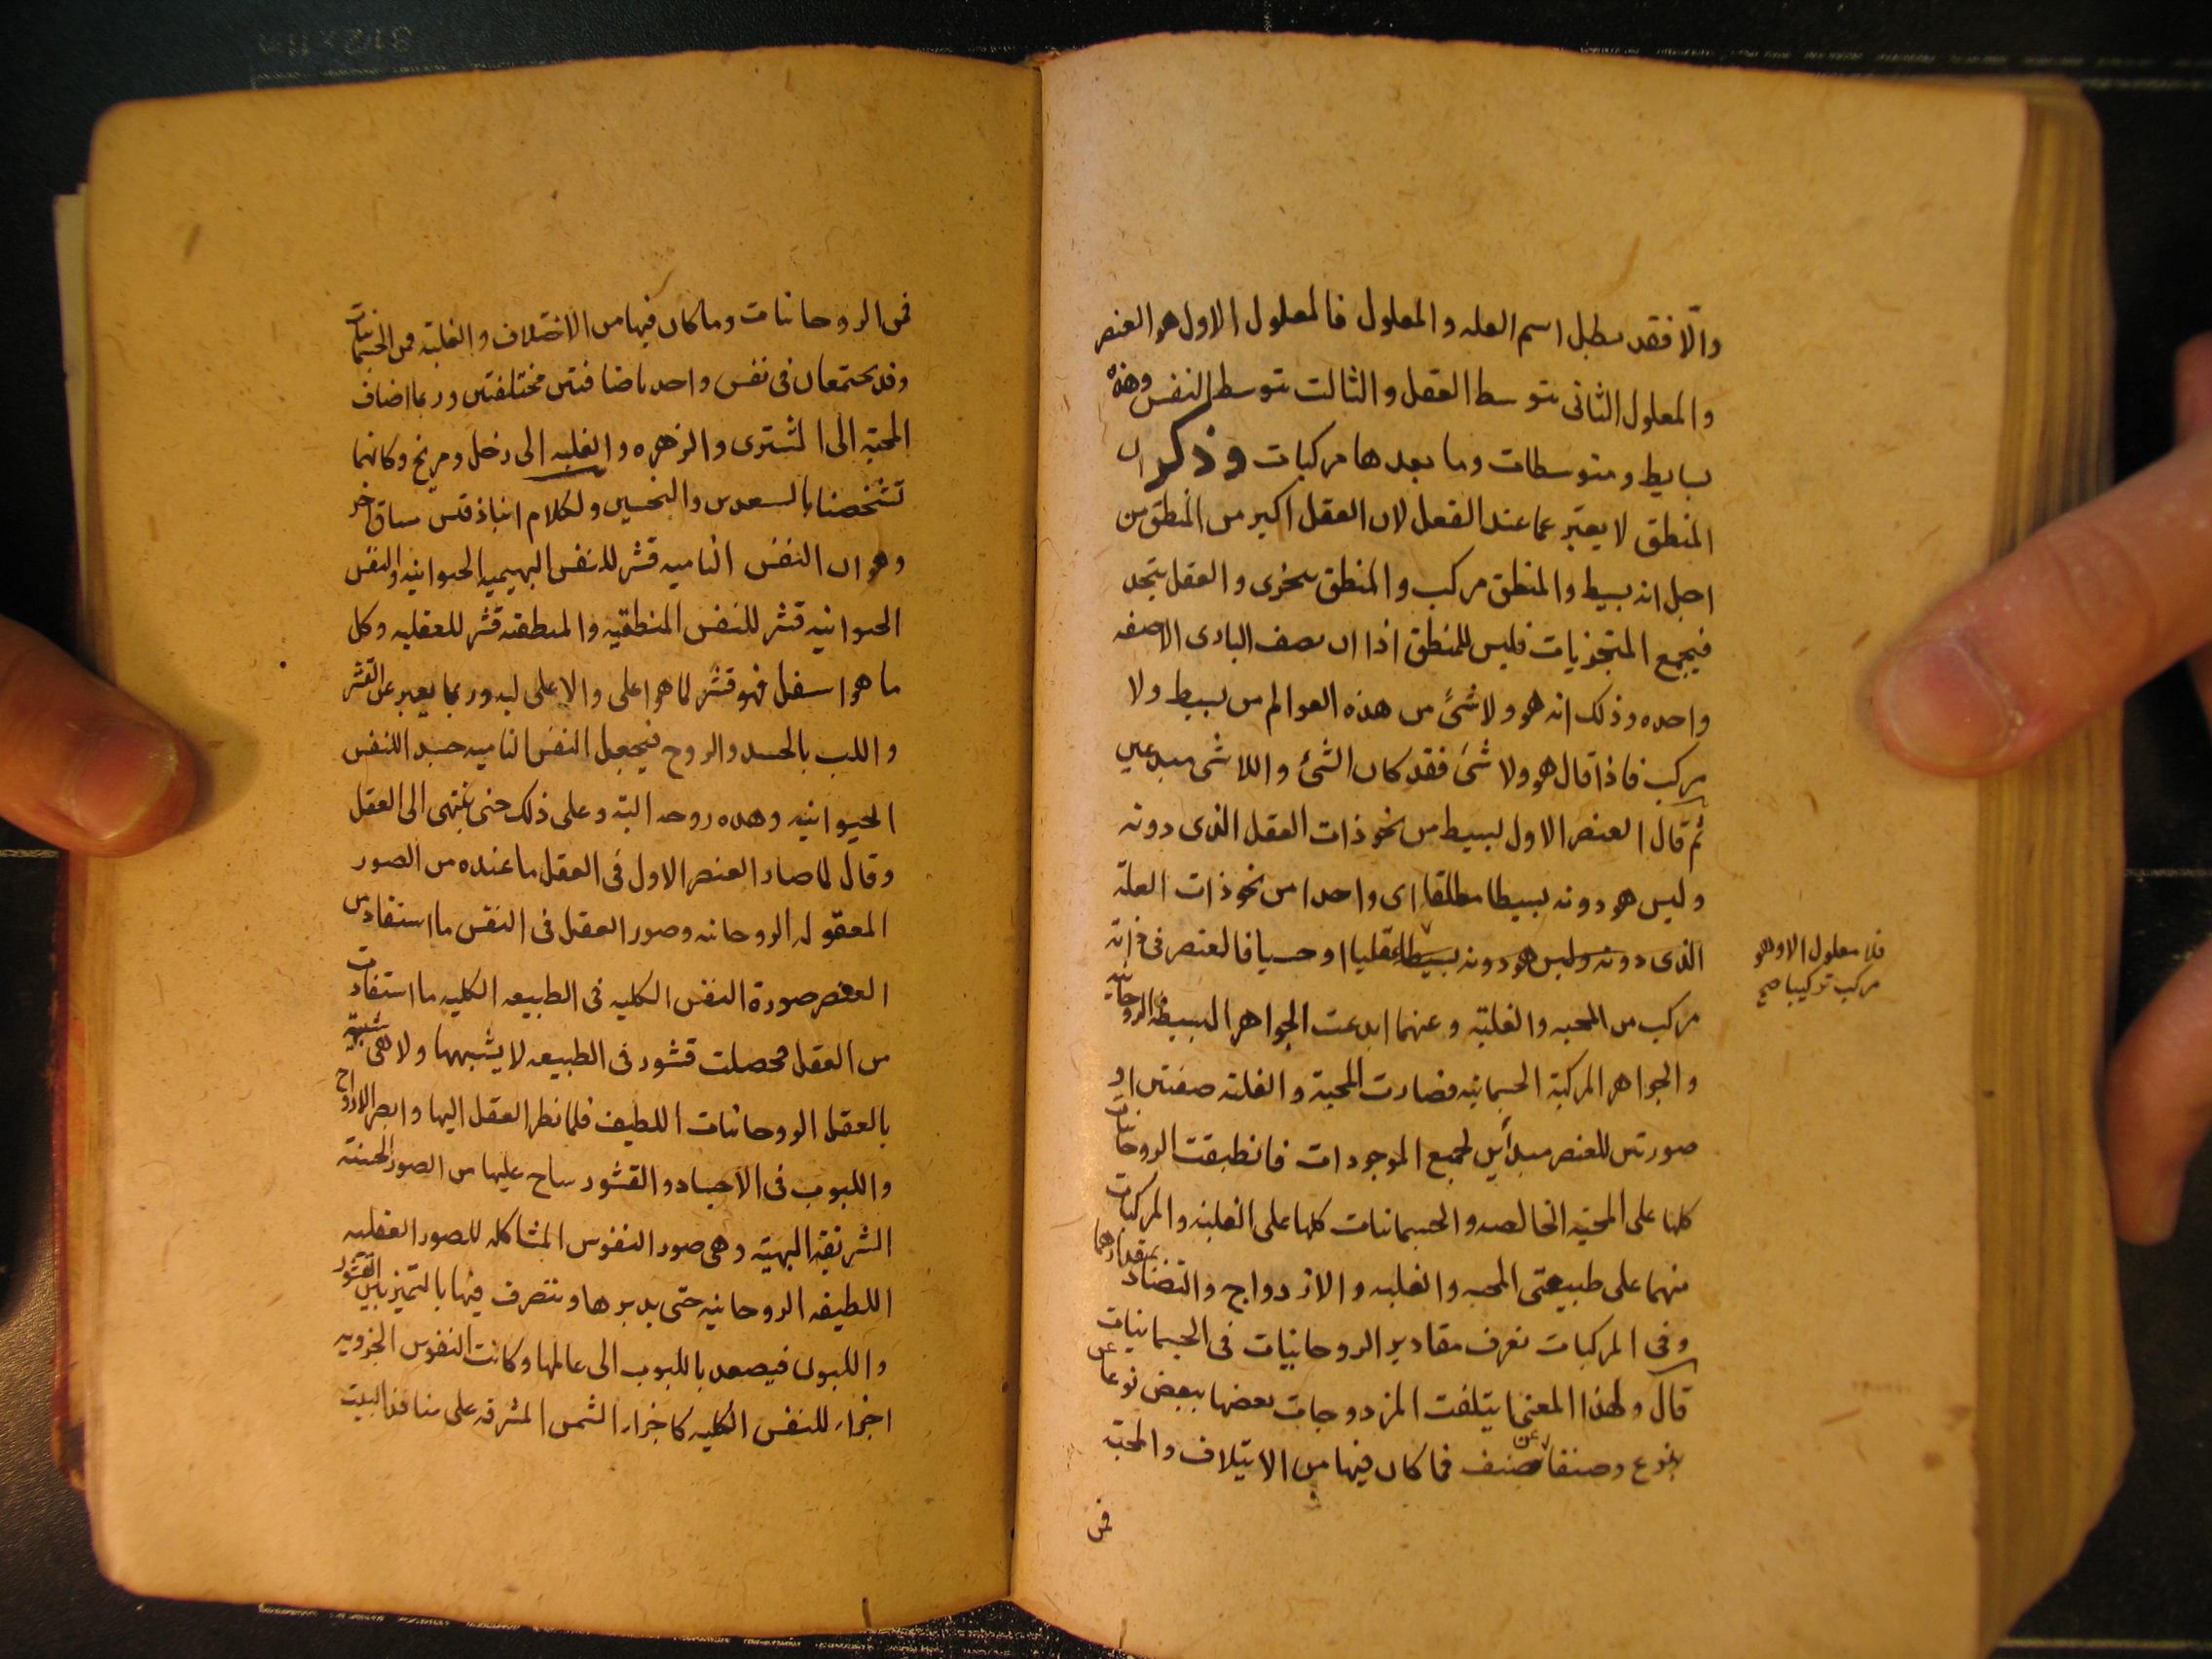 والّا فقد بطل اسم العله والمعلول فالمعلول الاول هو العنصر
والمعلول الثانى بتوسط العقل والثالث بتوسط النفس وهذه
بسايط ومتوسطات وما بعدها مركبات وذكر ان
المنطق لا يعبّر عما عند العقل لان العقل اكبر من المنطق من
اجل انه بسيط والمنطق مركب والمنطق يتجزى والعقل يتحد
فيجمع المتجزيات فليس للمنطق اذا ان يصف البارى الا صفه
واحده وذلك انه هو ولا شئ من هذه العوالم من بسيط ولا
مركب فاذا قال هو ولا شئ فقد كان الشئ واللا شئ مبدعين
ثم قال العنصر الاول بسيط من نحو ذات العقل الذى دونه
وليس هو دونه بسيطا مطلقا اى واحدا من نحو ذات العلة
الذى دونه وليس هو دونه بسيطا عقليا او حسيا فالعنصر فى ذاته
فلا معلول الا وهو
مركب تركيبا صح
مركب من المحبه والغلبة وعنهما ابدعت الجواهر البسيطه الروحانيه
والجواهر المركبة الجسمانيه فصارت المحبة والغلبه صفتين او
صورتين للعنصر مبدأين لجميع الموجودات فانطبقت الروحانيات
كلها على المحبه الخالصه والجسمانيات كلها على الغلبه والمركبات
منهما على طبيعتى المحبه والغلبه والازدواج والتضاد بمقدارهما
وفى المركبات تعرف مقادير الروحانيات فى الجسمانيات
قال ولهذا المعنى ايتلفت المزدوجات بعضها ببعض نوعا عن
بنوع وصنفا عن بصنف فما كان فيها من الايتلاف والمحبّه
فمن
فمن الروحانيات وما كان فيها من الاختلاف والغلبة فمن الجسمانيات
وقد يجتمعان فى نفس واحد باضافتين مختلفتين وربما اضاف
المحبّه الى المشترى والزهره والغلبه الى زحل ومريخ وكانهما
تشخصتا بالسعدين والنحسين ولكلام انباذقلس مساق اخر
وهو ان النفس الناميه قشر للنفس البهيميه الحيوانيه والنفس
الحيوانيه قشر للنفس المنطقيه والمنطقيه قشر للعقليه وكل
ما هو اسفل فهو قشر لما هو اعلى والاعلى لبه وربما يعبر عن القشر
واللب بالجسد والروح فيجعل النفس الناميه جسد النفس
الحيوانيه وهذه روحه البتة وعلى ذلك حتى ينتهى الى العقل
وقال لما صار العنصر الاول فى العقل ما عنده من الصور
المعقوله الروحانيه وصور العقل فى النفس ما استفاد من
العنصر صورة النفس الكليه فى الطبيعه الكليه ما استفادت
من العقل فحصلت قشور فى الطبيعه لا يشبهها ولا هى شبيهة
بالعقل الروحانيات اللطيف فلما نظر العقل اليها وابصر الارواح
واللبوب فى الاجساد والقشور ساح عليها من الصور الحسنة
الشريفة البهيّه وهى صور النفوس المشاكله للصور العقليه
اللطيفه الروحانيه حتى يدبرها ويتصرف فيها بالتميز بين القشور
واللبوب فيصعد باللبوب الى عالمها وكانت النفوس الجزويه
اجزاء للنفس الكليه كاجزاء الشمس المشرقه على منافذ البيت